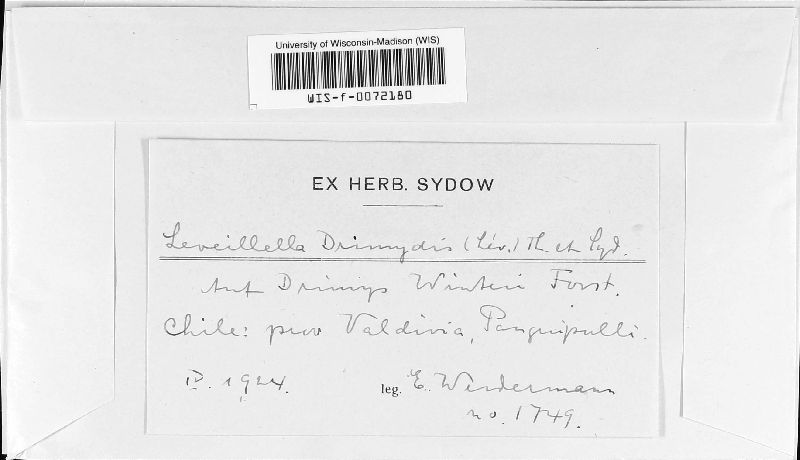 University of Wisconsin-Madison (WIS)
WIS-f-0072180
EX HERB. SYDOW
Leveillella Drimydis (Lév.) Th. et Syd.
Auf Drimys Winteri Forst.
Chile: prov Valdivia, Panguipulli.
IV. 1924. leg. E. Werdermann
no. 1749.